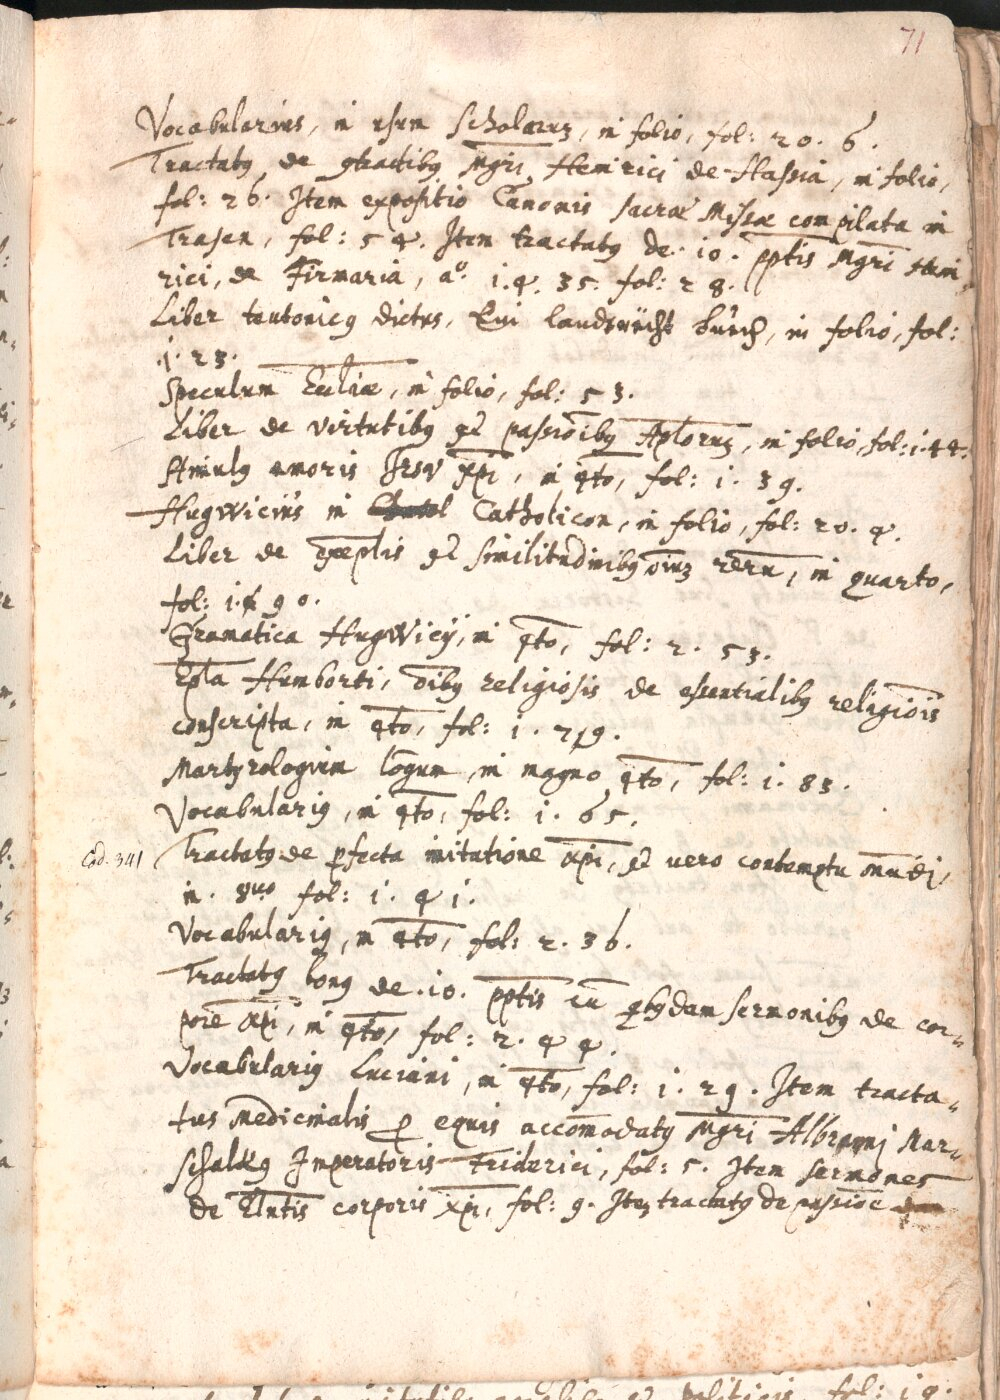 71
Vocabularius, in usum Scholarum, in folio, fol: 20. 6.
Tractatꝯ de ꝯtractibꝯ Mgri Heinrici de Hassia, in folio,
fol: 26. Item expositio Canonis sacræ Missæ compilata in
Trasen, fol: 54. Item tractatꝯ de. 10. pptis Mgri Hein
rici, de Firmaria, aº. i.4.35. fol: 28.
Liber teutonicꝯ dictus, Ein landtrecht buech, in folio, fol:
.i.23.
Speculum Eccliæ, in folio, fol: 53.
Liber de virtutibꝯ et passioibꝯ Aplorum, in folio, fol: i.44.
Stimulꝯ amoris Jesu xpi, in qto, fol: i. 39.
Hugwicius in Catholicon, in folio, fol: 20. 4.
Liber de exeplis et similitudinibꝯ oium reru, in quarto,
fol: i. 90.
Gramatica Hugwicij, in qto, fol: 2. 53.
Epla Humberti, oibꝯ religiosis de esentialibꝯ religiois
conscripta, in qto, fol: i. 79.
Martyrologium logum, in magno qto, fol: i. 83.
Vocabulariꝯ, in qto, fol: i. 65.
Cod. 341
Tractatꝯ de pfecta imitatione xpi, et vero contemptu mudi,
in. 8uo fol: i. 4 i.
Vocabulariꝯ, in qto, fol: 2. 36.
Tractatꝯ bonꝯ de .10. pptis cu qbꝯdam sermonibꝯ de cor„
pore xpi, in qto, fol: 2. 4 4.
Vocabulariꝯ Luciani, in qto, fol: i. 29. Item tracta„
tus medicinalis p equis accomodatꝯ Mgri Albrami Mar„
schalkꝯ Imperatoris Friderici, fol: 5. Item sermones
de Elntis corporis xpi, fol: 9. Item tractatꝯ de passioe